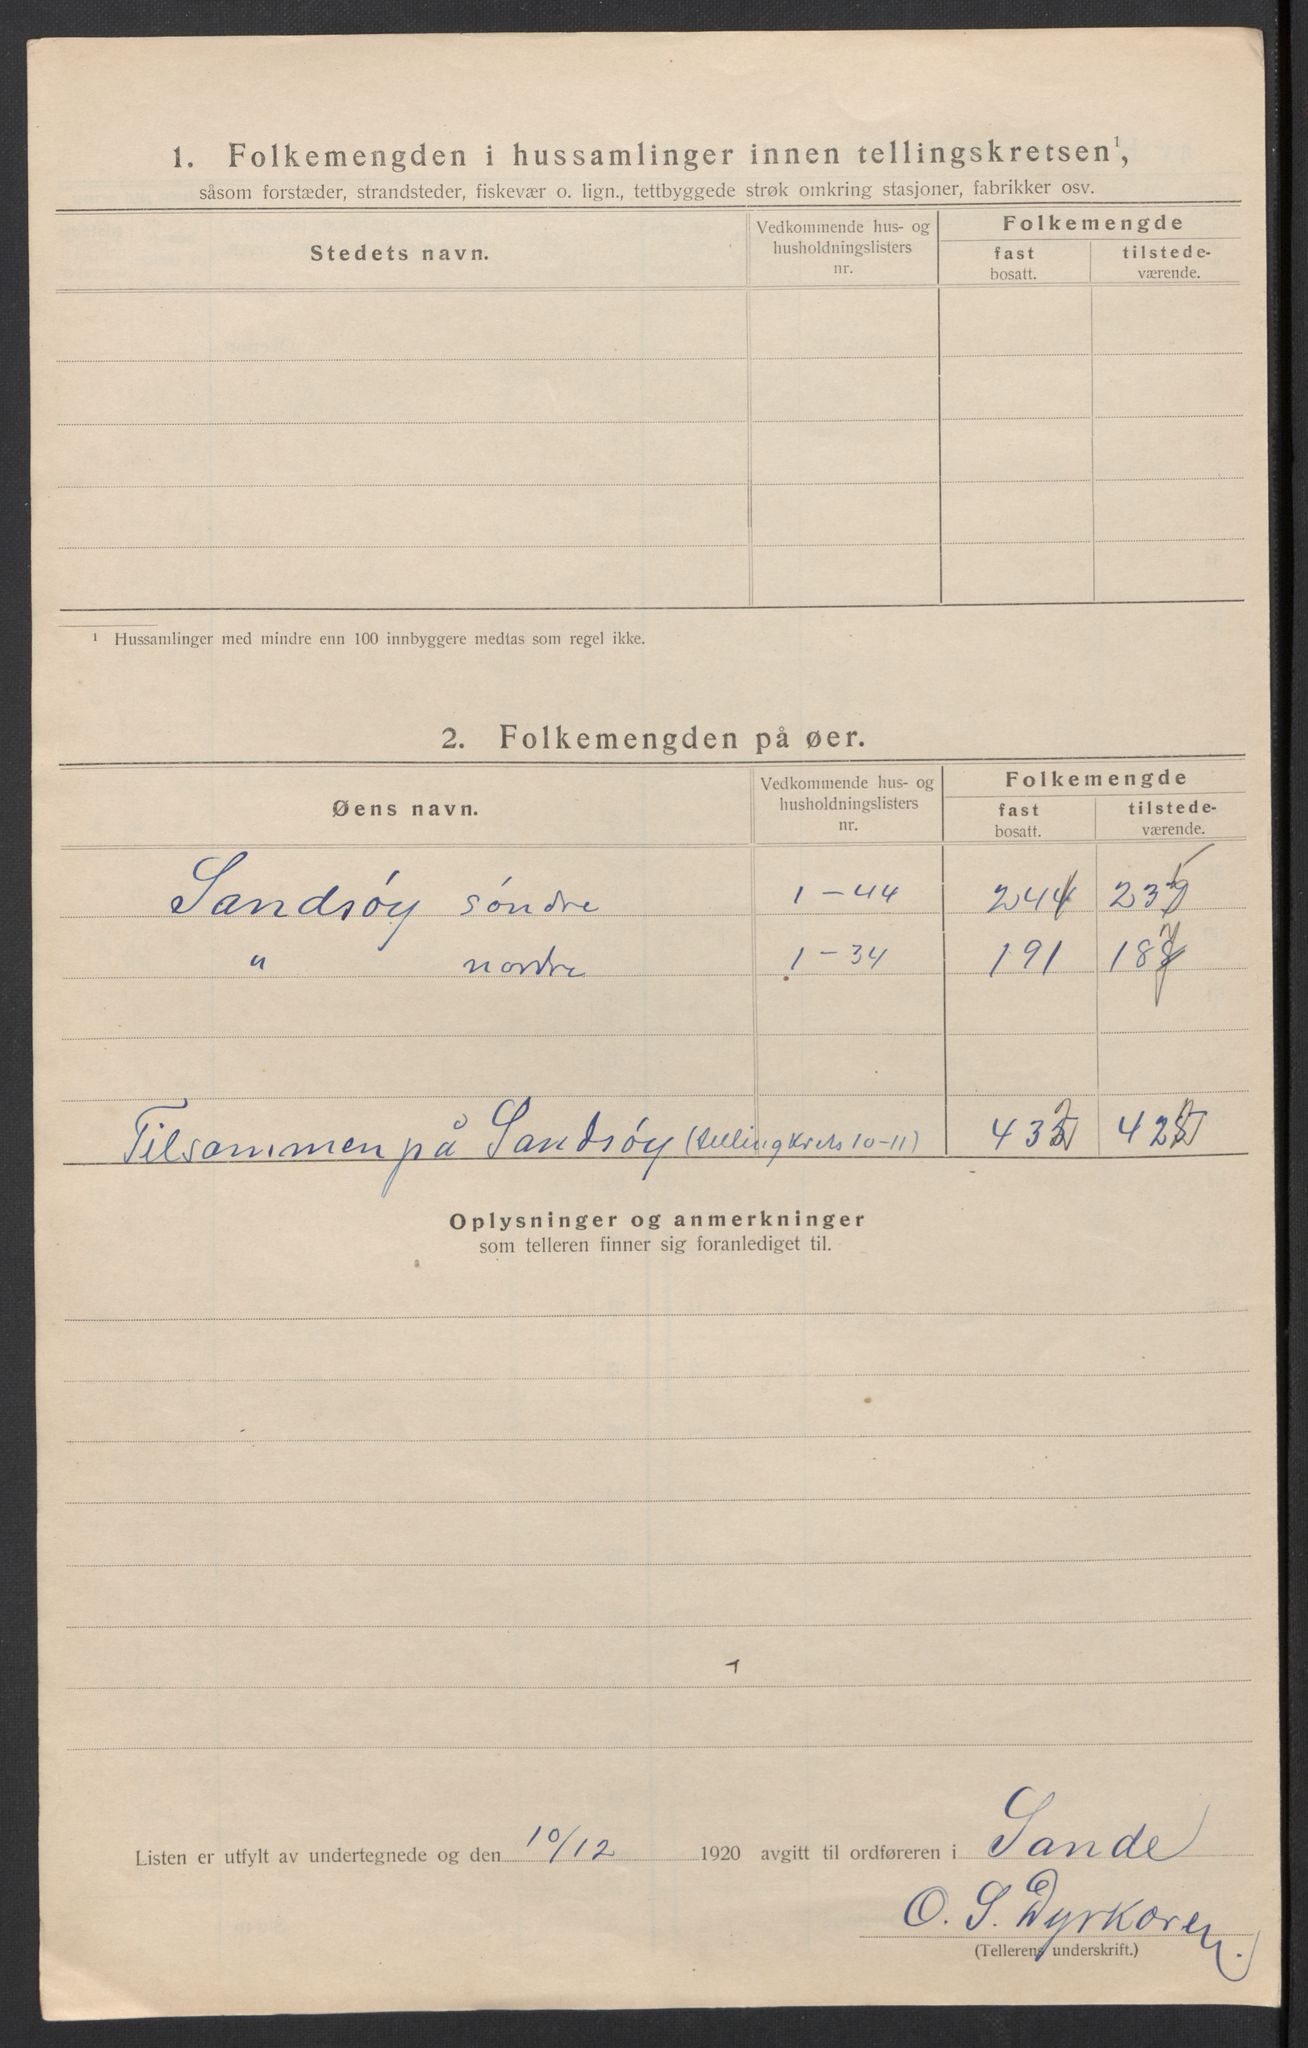 1. Folkemengden i hussamlinger innen tellingskretsen¹,
såsom forstæder, strandsteder, fiskevær o. lign., tettbyggede strøk omkring stasjoner, fabrikker osv.
Stedets navn.
Vedkommende hus- og
husholdningslisters
nr.
Folkemengde
fast
bosatt.
tilstede-
værende.
¹ Hussamlinger med mindre enn 100 innbyggere medtas som regel ikke.
2. Folkemengden på øer.
Øens navn.
Vedkommende hus- og
husholdningslisters
nr.
Folkemengde
fast
bosatt.
tilstede-
værende.
Sandsöy söndre 1-44
" nordre 1-34 191
Tilsammen på Sandsöy (tellingkrets 10-11)
Oplysninger og anmerkninger
som telleren finner sig foranlediget til.
Listen er utfylt av undertegnede og den 10/12 1920 avgitt til ordføreren i Sande
O. S. Dyrkoren.
(Tellerens underskrift.)